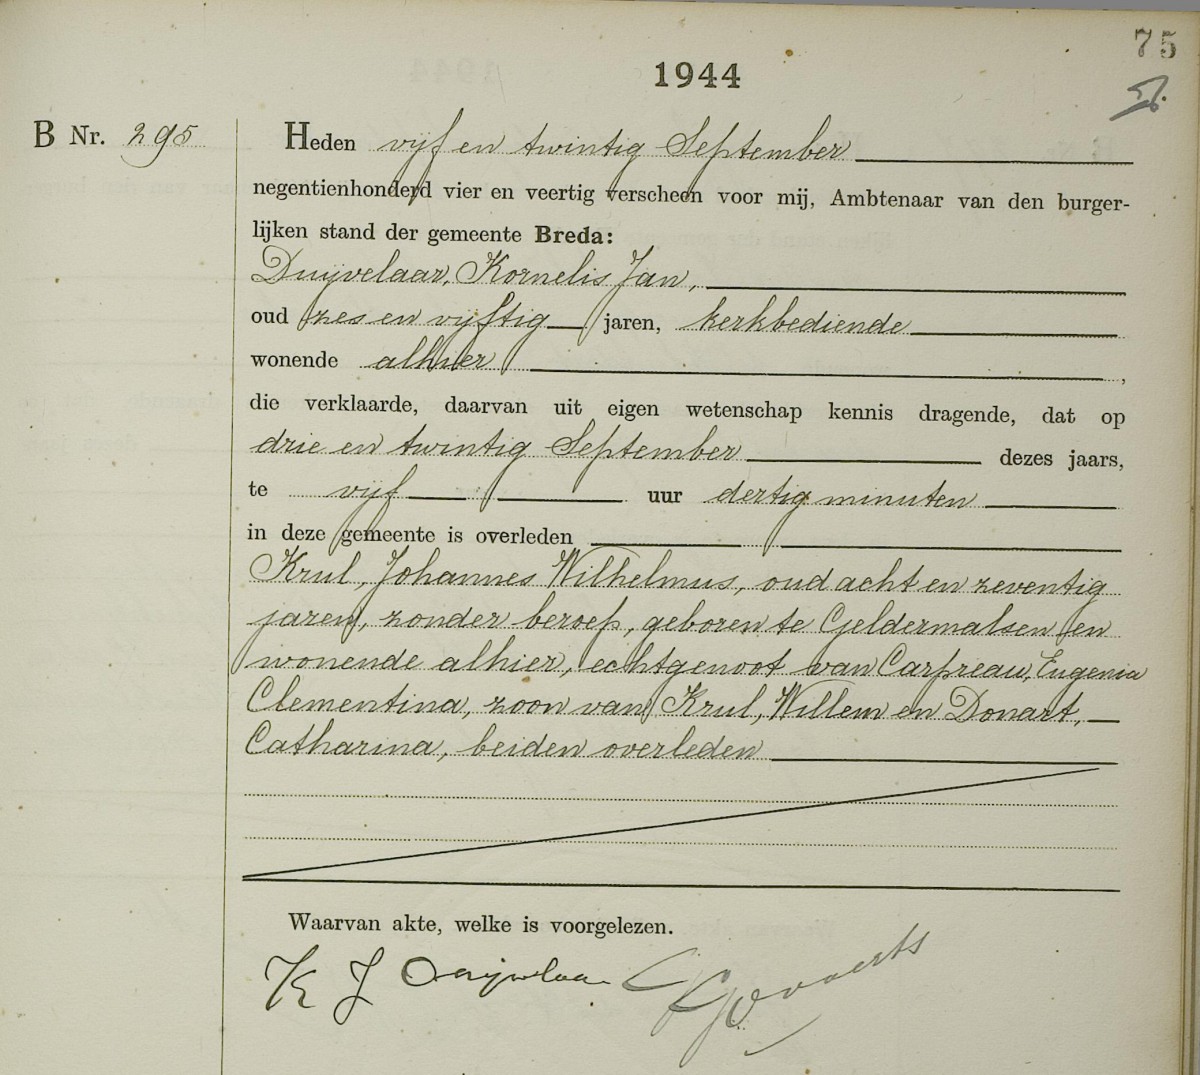 75
1944
B Nr. 295
Heden vijf en twintig September
negentienhonderd vier en veertig verscheen voor mij, Ambtenaar van den burger-
lijken stand der gemeente Breda:
Duijvelaar, Kornelis Jan,
oud zes en vijftig jaren, kerkbediende
wonende alhier ,
die verklaarde, daarvan uit eigen wetenschap kennis dragende, dat op
drie en twintig September dezes jaars,
te vijf uur dertig minuten
in deze gemeente is overleden
Krul, Johannes Wilhelmus, oud acht en zeventig
jaren, zonder beroep, geboren te Geldermalsen en
wonende alhier, echtgenoot van Carpreau, Eugenia
Clementina, zoon van Krul, Willem en Donart,
Catharina, beiden overleden
Waarvan akte, welke is voorgelezen.
K J Duijvelaar